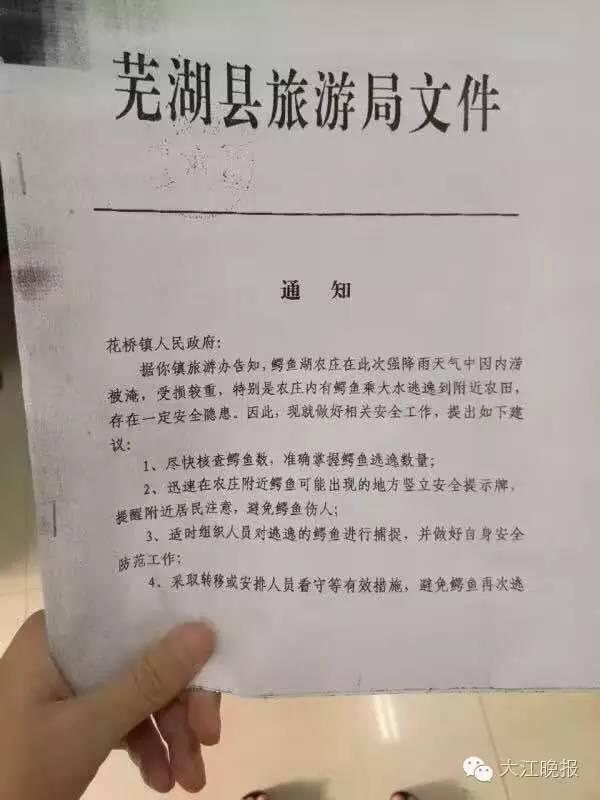 芜湖县旅游局文件
通 知
花桥镇人民政府：
据你镇旅游办告知，鳄鱼湖农庄在此次强降雨天气中因内涝
被淹，受损较重，特别是农庄内有鳄鱼乘大水逃逸到附近农田，
存在一定安全隐患。因此，现就做好相关安全工作，提出如下建
议：
1、尽快核查鳄鱼数，准确掌握鳄鱼逃逸数量；
2、迅速在农庄附近鳄鱼可能出现的地方竖立安全提示牌，
提醒附近居民注意，避免鳄鱼伤人；
3、适时组织人员对逃逸的鳄鱼进行捕捉，并做好自身安全
防范工作；
4、采取转移或安排人员看守等有效措施，避免鳄鱼再次逃
大江晚报